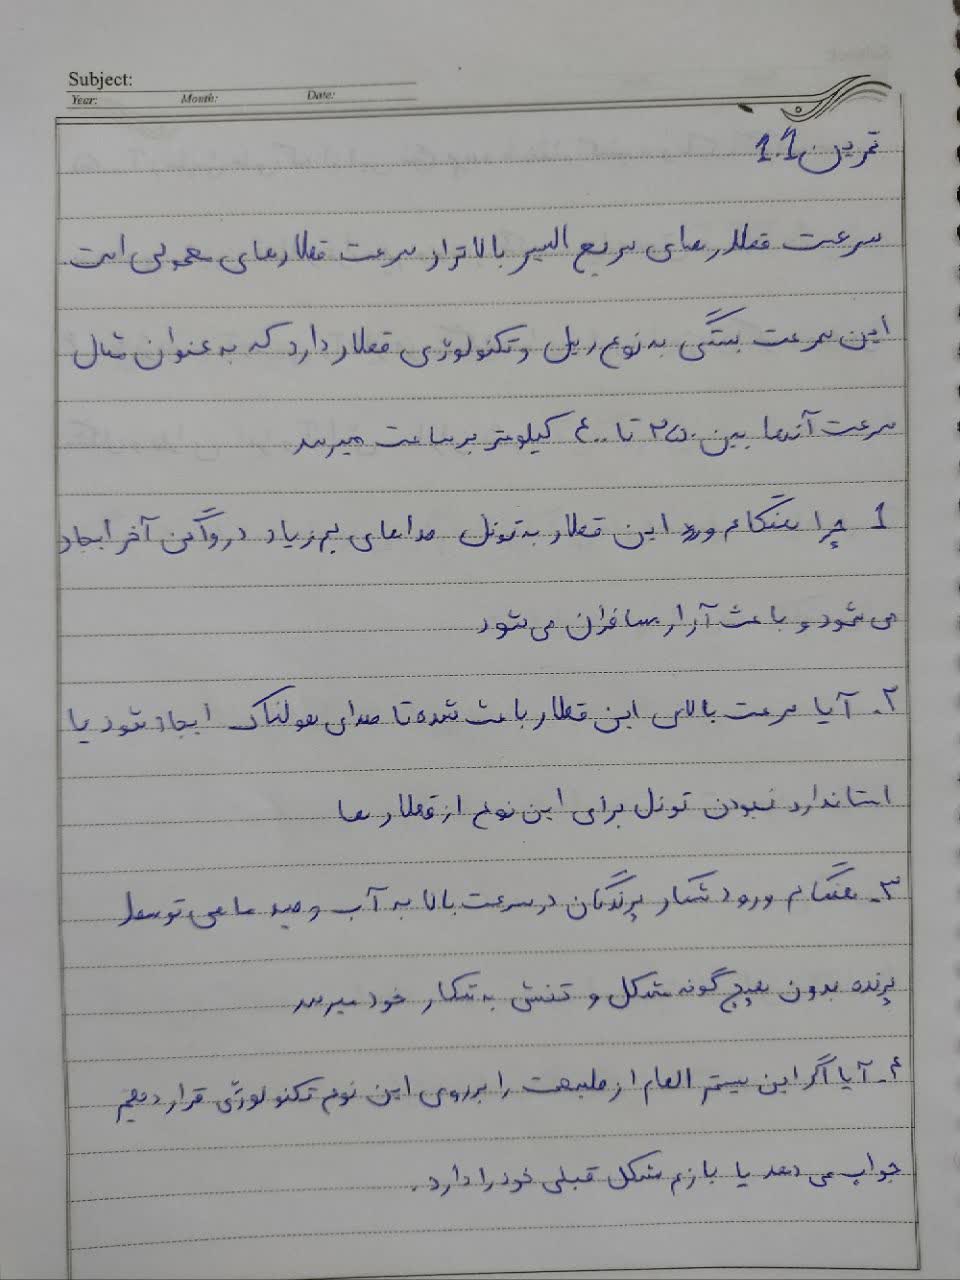 Subject:
Year: Month: Date:
تمرین 1.1
سرعت قطارهای سریع السیر بالاتر از سرعت قطارهای معمولی است
این سرعت بستگی به نوع ریل و تکنولوژی قطار دارد که به عنوان مثال
سرعت آنها بین ۲۵۰ تا ۴۰۰ کیلومتر بر ساعت میرسد
1 چرا هنگام ورود این قطار به تونل صداهای بم زیاد در واگن آخر ایجاد
می شود و باعث آزار مسافران می شود
۲. آیا سرعت بالای این قطار باعث شده تا صدای هولناک ایجاد شود یا
استاندارد نبودن تونل برای این نوع از قطار ها
۳. هنگام ورود شکار پرندگان در سرعت بالا به آب و صید ماهی توسط
پرنده بدون هیچ گونه مشکل و تنش به شکار خود میرسد
۴. آیا اگر این سیستم الهام از طبیعت را بر روی این نوع تکنولوژی قرار دهیم
جواب می دهد یا بازم مشکل قبلی خود را دارد.